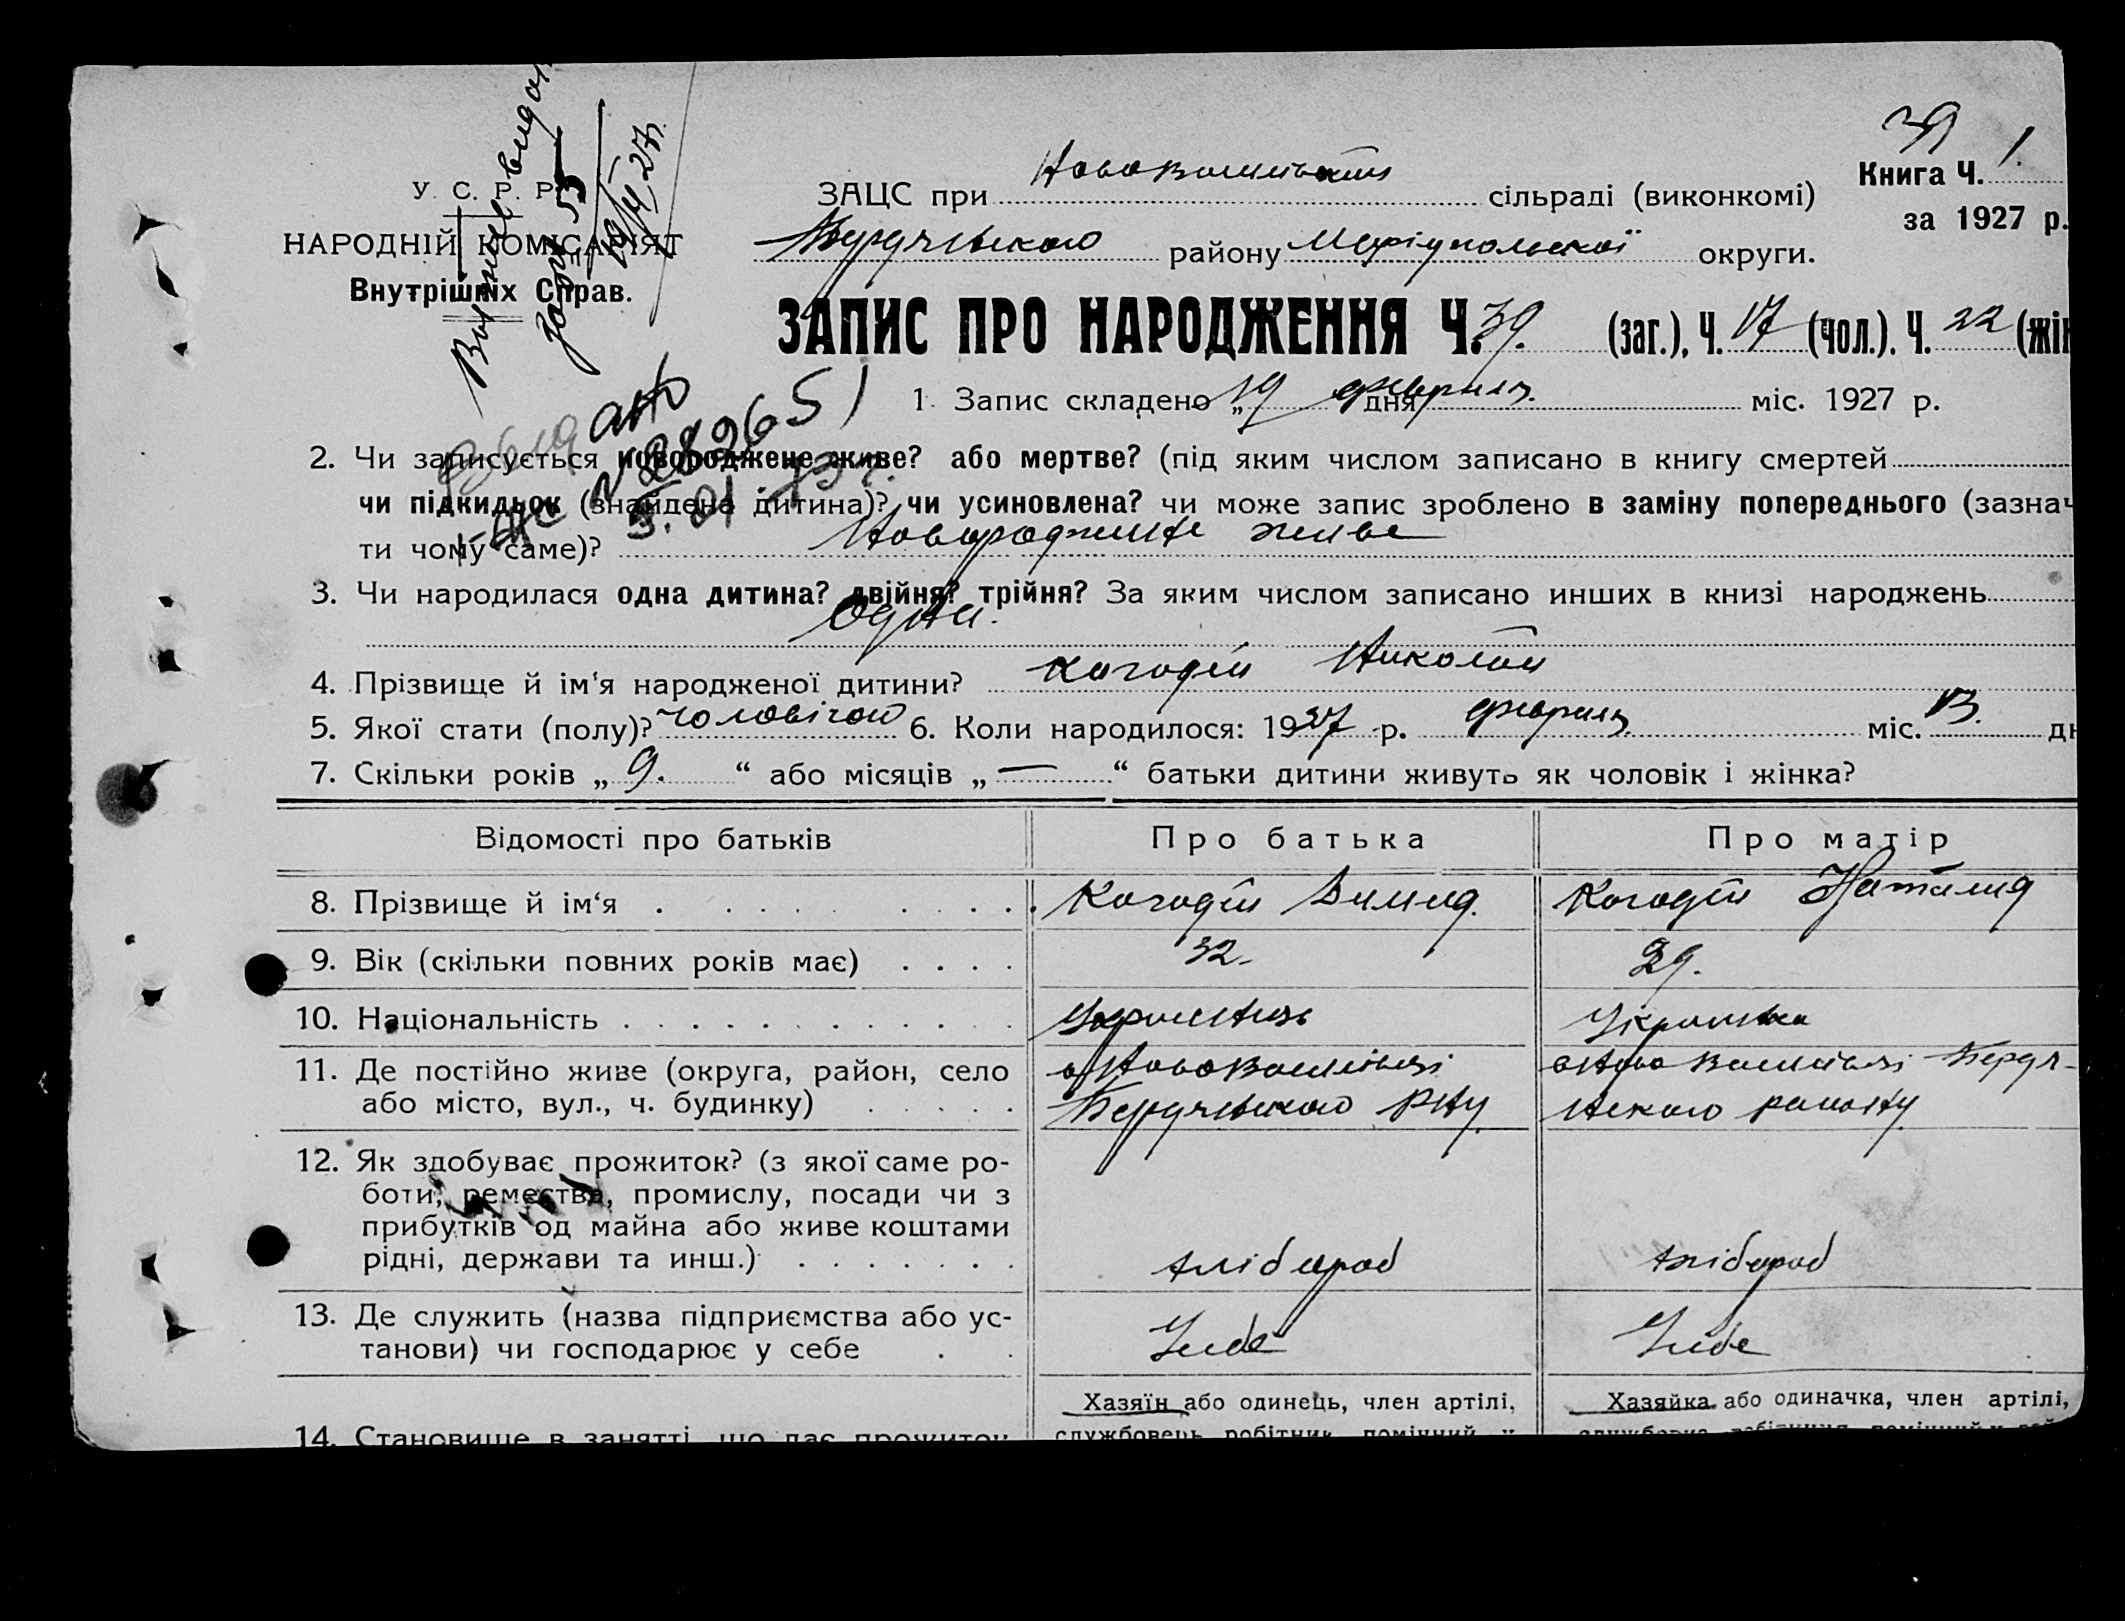 39
У. С. Р. Р.
НАРОДНІЙ КОМІСАРІЯТ
Внутрішніх Справ.
ЗАЦС при сільраді (виконкомі)
Книга Ч. 1.
за 1927 р.
Бердянського району Маріупольської округи.
ЗАПИС ПРО НАРОДЖЕННЯ Ч. 39. (заг.), Ч. 17 (чол.). Ч. 22 (жін
1. Запис складено „19 дня февраля міс. 1927 р.
2. Чи записується новороджене живе? або мертве? (під яким числом записано в книгу смертей
чи підкидьок (знайдена дитина)? чи усиновлена? чи може запис зроблено в заміну попереднього (зазнач
ти чому саме)? Новороджине живе
3. Чи народилася одна дитина? двійня? трійня? За яким числом записано инших в книзі народжень
Одна.
4. Прізвище й ім'я народженої дитини? Когодій Николай
5. Якої стати (полу)? чоловічою 6. Коли народилося: 1927 р. февраля міс. 13. дн
7. Скільки років „ 9. “ або місяців „ — “ батьки дитини живуть як чоловік і жінка?
Відомості про батьків Про батька Про матір
8. Прізвище й ім'я . . . . . . . . . Когодій Когодій Наталия
9. Вік (скільки повних років має) . . . . 32. 29.
10. Національність . . . . . . . . . . . Українець Українка
11. Де постійно живе (округа, район, село с. Нововасилівці с. Ново Василівці Бердя-
або місто, вул., ч. будинку) . . . . . Бердянського Р-ну нского району
12. Як здобуває прожиток? (з якої саме ро-
боти, ремества, промислу, посади чи з
прибутків од майна або живе коштами
рідні, держави та инш.) . . . . . . . хлібороб хлібороб
13. Де служить (назва підприємства або ус-
танови) чи господарює у себе . . У себе У себе
Хазяїн або одинець, член артілі, Хазяйка або одиначка, член артілі,
14. Становище в занятті, що дає прожиток службовець, робітник, помічний у